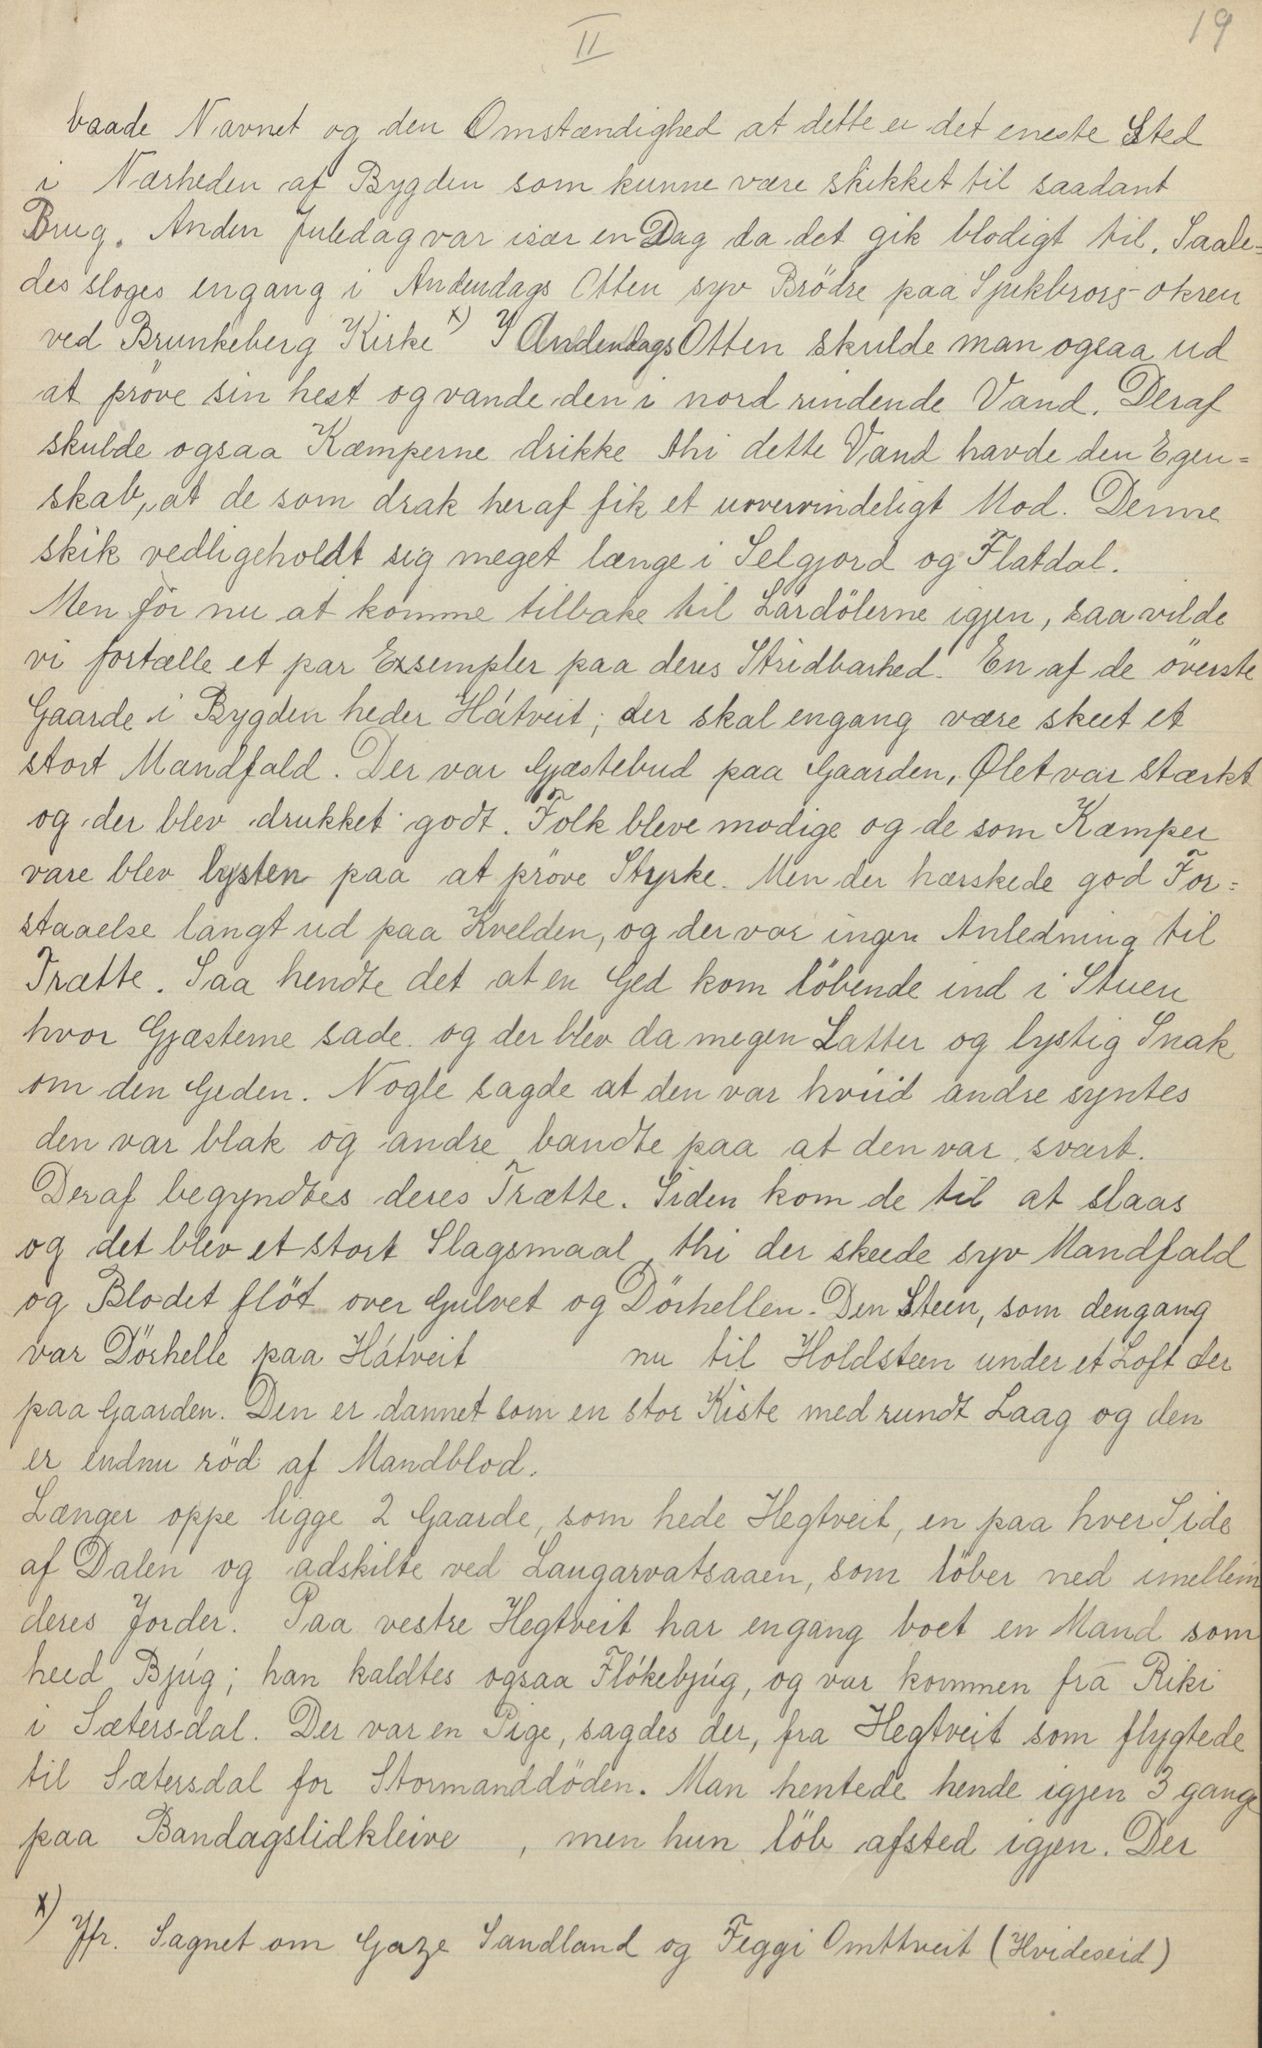 19
II
baade Navnet og den Omstændighed at dette er det eneste Sted
i Nærheden af Bygden som kunne være skikket til saadant
Brug. Anden Juledag var især en Dag da det gik blodigt til. Saale=
des sloges engang i Andendags Otten syv Brödre paa Spikbrors-okren
ved Brunkeberg Kirke x) I Andendags Otten skulde man ogsaa ud
at pröve sin hest og vande den i nord rindende Vand. Deraf
skulde ogsaa Kæmperne drikke thi dette Vand havde den Egen=
skab, at de som drak heraf fik et uovervindeligt Mod. Denne
skik vedligeholdt sig meget længe i Selgjord og Flatdal.
Men för nu at komme tilbake til Lårdölerne igjen, saa vilde
vi fortælle et par Exsempler paa deres Stridbarhed. En af de överste
Gaarde i Bygden heder Håtveit; der skal engang være skeet et
stort Mandfald. Der var Gjæstebud paa Gaarden, Ølet var stærkt
og der blev drukket godt. Folk bleve modige og de som Kæmper
vare blev lysten paa at pröve Styrke. Men der hærskede god For=
staaelse langt ud paa Kvelden, og der var ingen Anledning til
Trætte. Saa hendte det at en Ged kom löbende ind i Stuen
hvor Gjæsterne sade og der blev da megen Latter og lystig Snak
om den Geden. Nogle sagde at den var hviid andre syntes
den var blak og andre bandte paa at den var svart.
Deraf begyndtes deres Trætte. Siden kom de til at slaas
og det blev et stort Slagsmaal, thi der skeede syv Mandfald
og Blodet flöt over Gulvet og Dörhellen. Den Steen, som dengang
var Dörhelle paa Håtveit nu til Holdsteen under et Loft der
paa Gaarden. Den er dannet som en stor Kiste med rundt Laag og den
er endnu röd af Mandblod.
Længer oppe ligge 2 Gaarde, som hede Hegtveit, en paa hver Side
af Dalen og adskilte ved Laugarvatsaaen, som löber ned imellem
deres Jorder. Paa vestre Hegtveit har engang boet en Mand som
heed Bjúg; han kaldtes ogsaa Flókebjúg, og var kommen fra Riki
i Sætersdal. Der var en Pige, sagdes der, fra Hegtveit som flygtede
til Sætersdal for Stormanddöden. Man hentede hende igjen 3 gange
paa Bandagslidkleive , men hun löb afsted igjen. Der
x) Jfr. Sagnet om Gaze Sandland og Feggi Omttveit (Hvideseid)